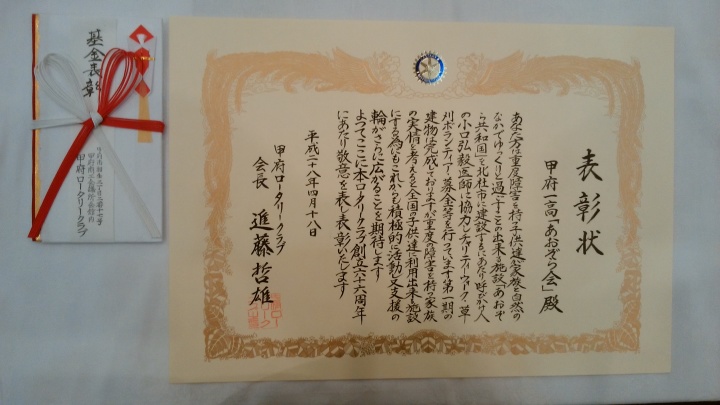 表彰状
甲府一高「あおぞら会」殿
あなた方は重度障害を持つ子供達が家族と自然の
なかでゆっくりと過すことの出来る施設「あおぞ
ら共和国」を北杜市に建設するにあたり呼びかけ人
の小口弘毅医師に協力しチャリティーウォーク、草
刈ボランティア、募金等を行っています第一期の
建物は完成しておりますが重度の障害を持つ家族
の実情を考えると全国の子供達に利用出来る施設
にする為にもこれからも積極的に活動し支援の
輪がさらに広がることを期待します
よってここに本ロータリークラブ創立六十六周年
にあたり敬意を表し表彰いたします
平成二十八年四月十八日
甲府ロータリークラブ
会長 進藤哲雄
基金表彰
甲府商工会議所会館内
甲府ロータリークラブ